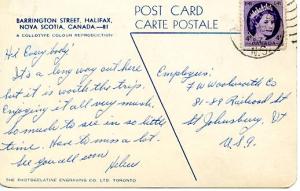 BARRINGTON STREET, HALIFAX,
NOVA SCOTIA, CANADA.—81
A COLLOTYPE COLOUR REPRODUCTION
POST CARD
CARTE POSTALE
CANADA
Hi Every body!
It's a long way out here
but it is worth the trip.
Enjoying it all very much.
So much to see in so little
time. Have to miss a lot.
See you all soon
Helen
Employees:
F W Woolworth Co
81-89 Railroad St
St Johnsbury, Vt
USA.
THE PHOTOGELATINE ENGRAVING CO. LTD. TORONTO